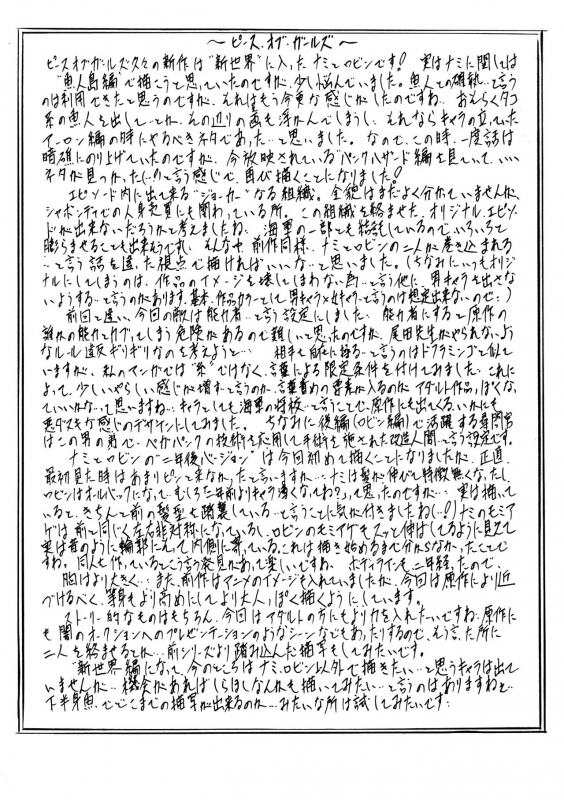 ～ピース.オブ.ガールズ～
ピースオブガールズ久々の新作は"新世界"に入ったナミとロビンです! 実はナミに関しては
"魚人島編"で描こうと思っていたのですが、少し悩んでいました。魚人との絡み…と言う
のは利用できたと思うのですが、それはもう今更な感じがしたのですね。おそらくタコ
系の魚人を出して…とか、その辺りの画も浮かんでしまうし、それならキャラの立ってた
アーロン編の時にやるべきネタであった…と思いました。なので、この時、一度話は
暗礁にのり上げていたのですが、今放映されている"パンクハザード"編を見ていて、いい
ネタが見つかった(…)と言う感じで、再び描くことになりました!
エピソード内に出て来る"ジョーカー"なる組織。全貌はまだよく分かっていませんが、
シャボンディでの人身売買にも関わっている所。この組織を絡ませた、オリジナルエピソー
ドが出来ないだろうかと考えましたね。海軍の一部とも結託しているのでいろいろと
膨らませることも出来そうですし。そんな中、前作同様、ナミとロビンの二人が巻き込まれる
…と言う話を違った視点で描ければいいな…と思いました。(ちなみにいつもオリジナ
ルにしてしまうのは、作品のイメージを壊してしまわない為…と言う他に、男キャラを出さな
いようする…と言うのがあります。基本、作品カラーとして男キャラ×女キャラ…と言うのは想定出来ないので;)
前回と違い、今回の敵は能力者…と言う設定にしました。能力者にすると原作の
誰かの能力とカブってしまう危険があるので難しいと思ったのですが、尾田先生がやられないよう
なルール違反ギリギリなのを考えようと… 相手を自在に操る…と言うのはドフラミンゴと似て
いますが、私のマンガでは"糸"ではなく、"言葉"による限定条件を付けてみました。これに
よって、少しいやらしい感じが増す…と言うのか、言葉責めの要素が入るのが、アダルト作品っぽくな
っていいかな…って思いますね…キャラとしても海軍の将校…と言うことで、原作にも出てくる、いかにも
悪ダヌキな感じのデザインにしてみました。 ちなみに後編(ロビン編)で活躍する尋問官
はこの男の弟で、ベガパンクの技術を応用して手術を施された改造人間…と言う設定です。
ナミとロビンの"二年後バージョン"は今回初めて描くことになりましたが、正直、
最初見た時はあまりピンと来なかったと言いますか…ナミは髪が伸びて特徴無くなったし、
ロビンはオールバックになって、"むしろ二年前よりキャラ薄くなってね?"って思ったのですが… 実は描いて
いると、きちんと前の髪型を踏襲している…と言うことに気が付きましたね(…!)ナミのモミア
ゲは前と同じく左右非対称になっているし、ロビンのモミアゲもスッと伸ばしてるように見えて
実は昔のように輪郭にそって内側に寄っている。これは描き始めるまで分からなかったことで
すね。同人を作っているとこう言う発見があって楽しいですね。ボディラインも二年経ったので、
胸はより大きく… また、前作はアニメのイメージも入れていましたが、今回は原作により近
づけるべく、等身もより高めにしてより大人っぽく描くようにしています。
ストーリー的なものはもちろん、今回はアダルトの方にもより力を入れたいですね。原作に
も闇のオークションへのプレゼンテーションのようなシーンなどもあったりするので、そう言った所に
二人を絡ませるとか…前シリーズより踏み込んだ描写もしてみたいです。
"新世界編"になって、今のところはナミ、ロビン以外で描きたい…と思うキャラは出て
いませんが… 機会があれば"しらほし"なんかも描いてみたい…と言うのはありますねぇ…
下半身魚…でどこまでの描写が出来るのか…みたいな所は試してみたいです;